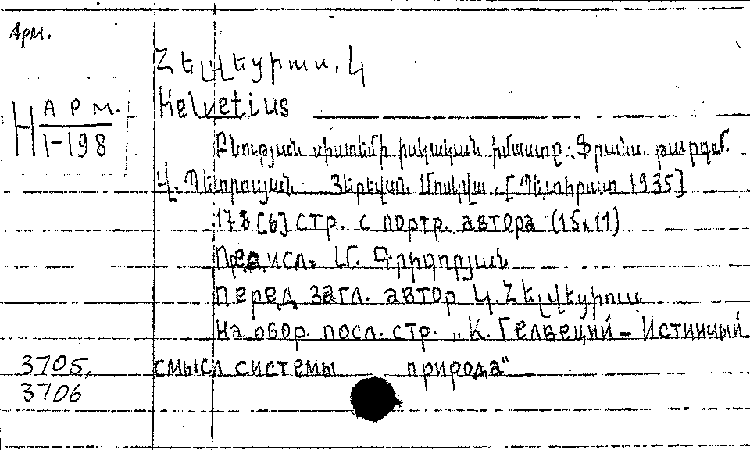 Арм.
Հելվեցիուս. Կ
Helvetius
Н АРМ.
1-198
Բնության սիստեմի իսկական իմաստը. Ֆրանս. թարգմ.
Կ. Պետրոսյան Յերեվան Մոսկվա. [Պետհրատ 1935]
178 [6] стр. с портр. автора (15х11)
Предисл. Մ. Գրիգորյան
Перед загл. автор Կ. Հելվեցիուս
На обор. посл. стр. „К. Гельвеций – Истинный
смысл системы природа"
3705,
3706